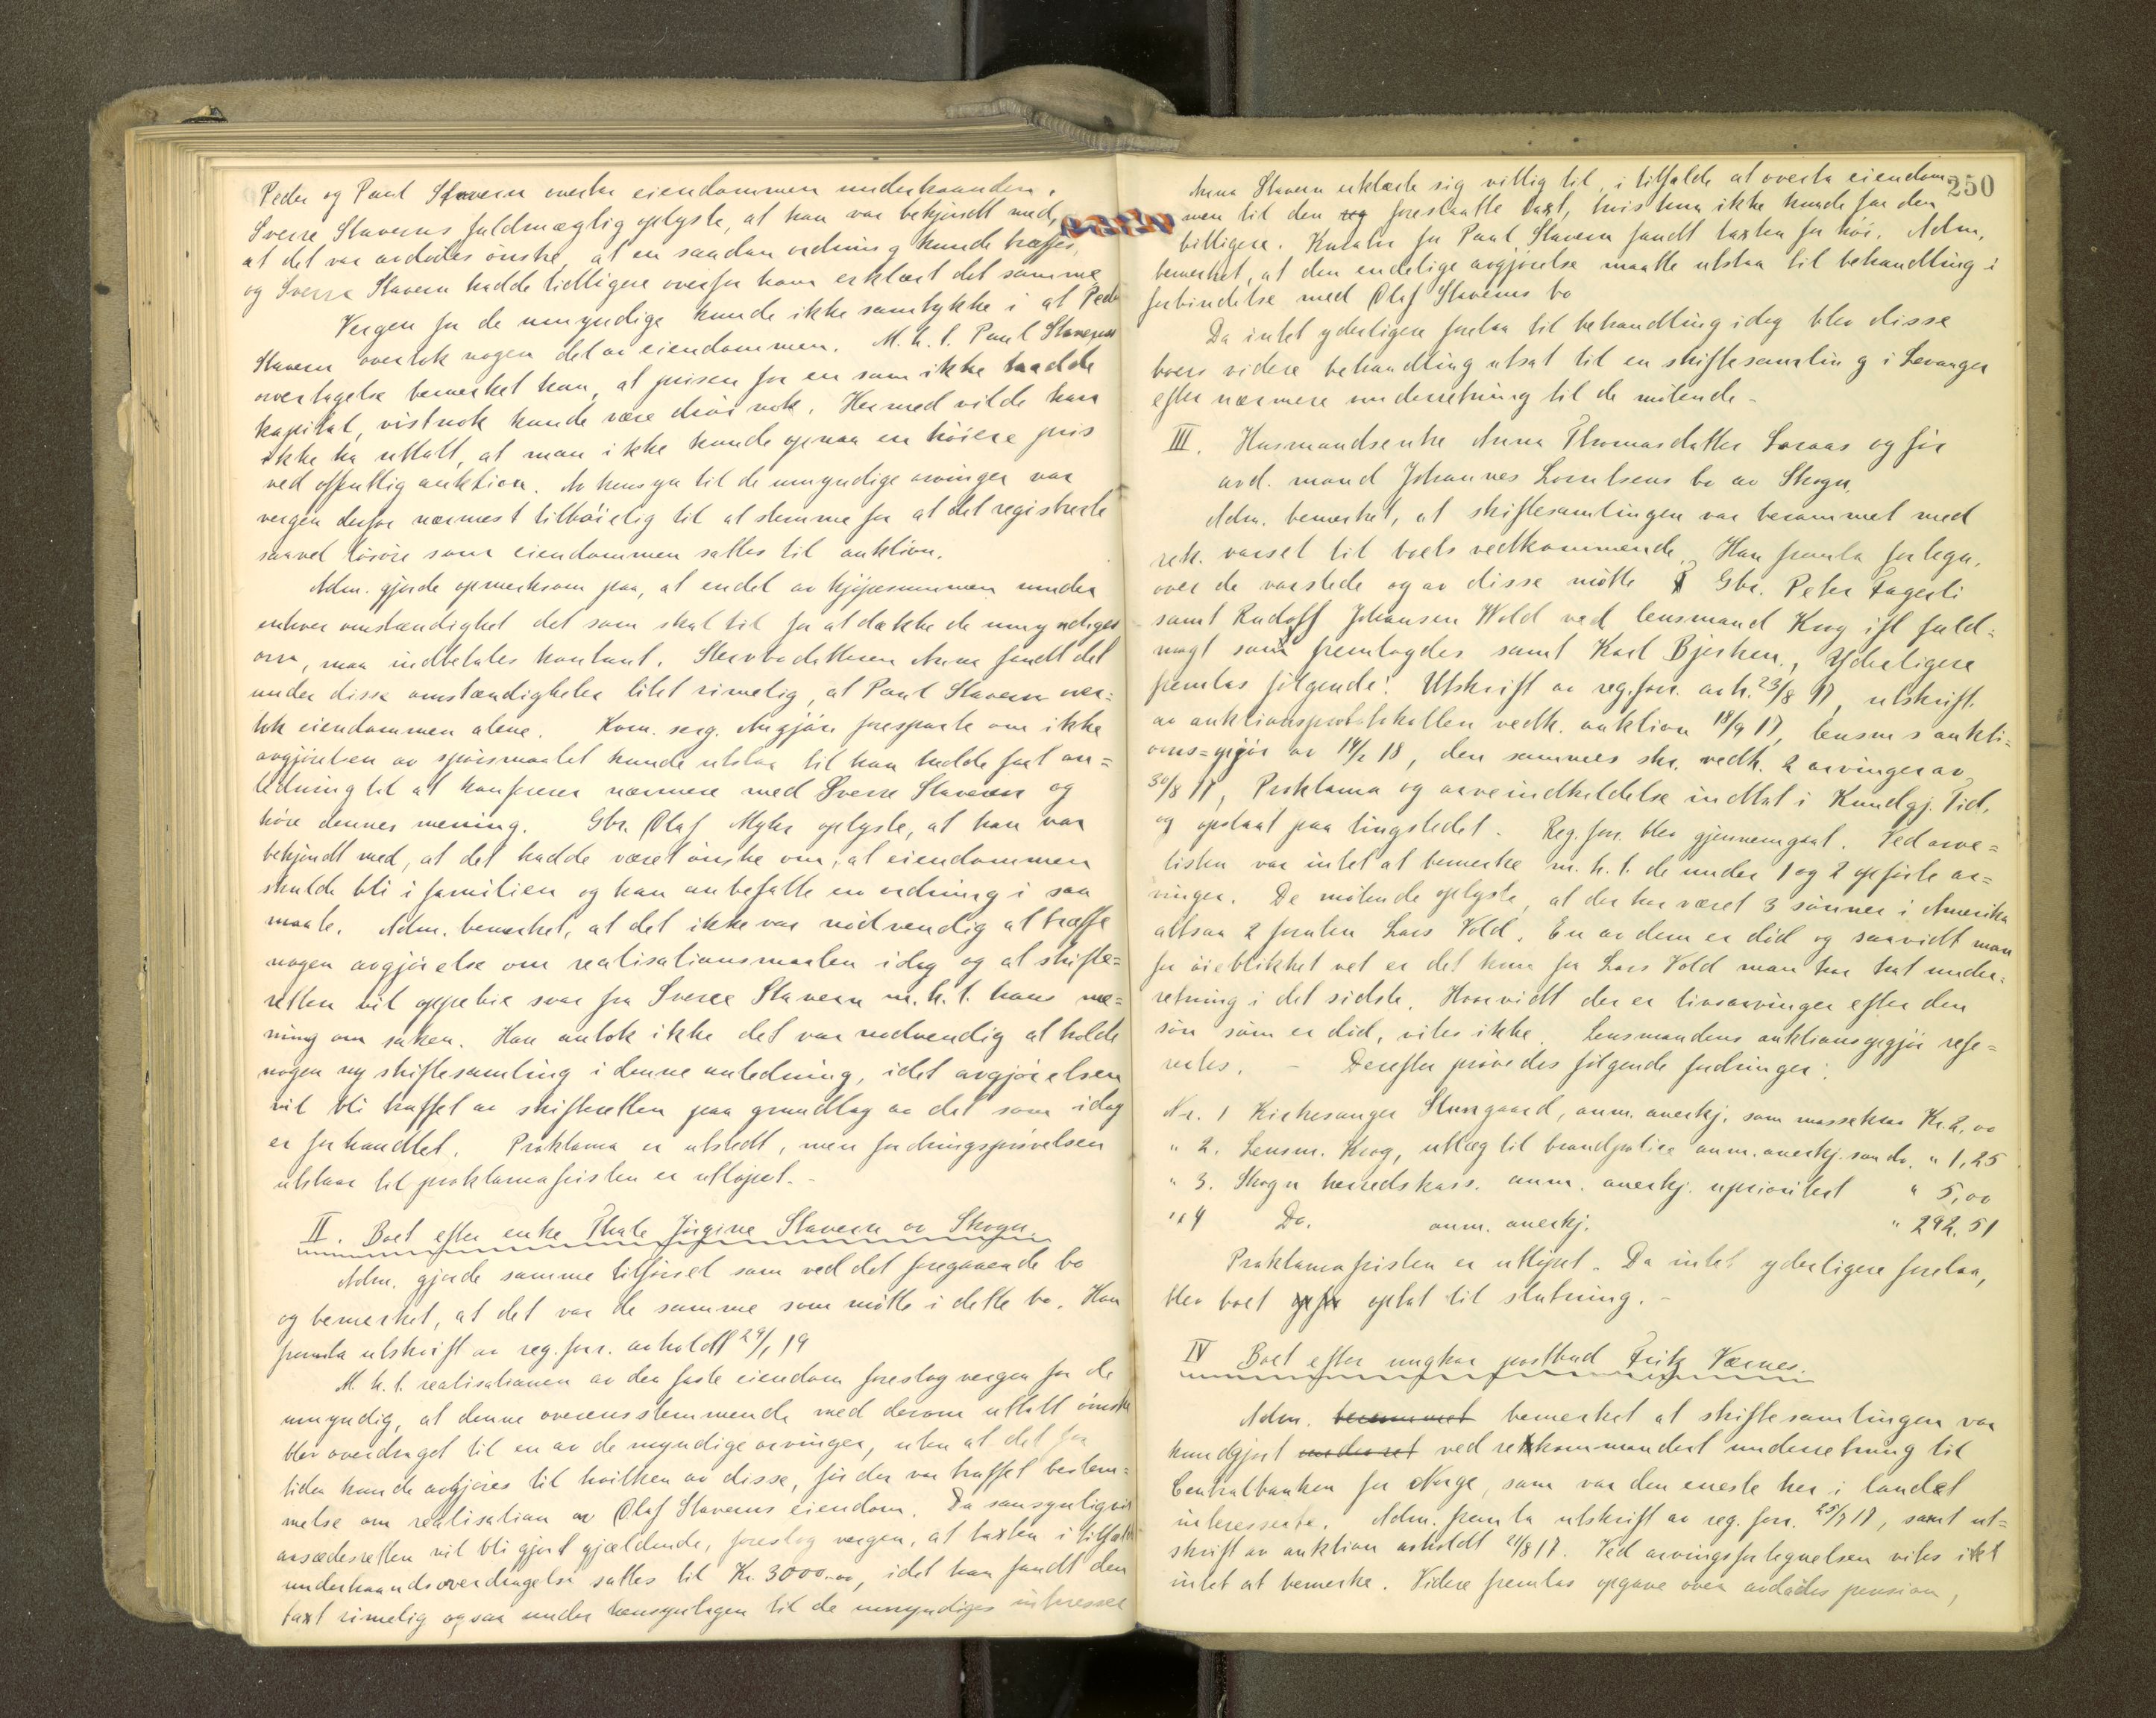 Peder og Paul Stavern overta eiendommen underhaanden.
Sverre Staverns fuldmægtig oplyste, at han var bekjendt med,
at det var avdødes ønske, at en saadan ordning kunde træffes,
og Sverre Stavern hadde tidligere overfor ham erklært det samme
Vergen for de umyndige kunde ikke samtykke i at Peder
Stavern overtok nogen del av eiendommen. M. h. t. Paul Staverns
overtagelse bemerket han, at prisen for en som ikke hadde
kapital, vistnok kunde være drøi nok. Hermed vilde han
ikke ha uttalt, at man ikke kunde opnaa en høiere pris
ved offentlig auktion. Av hensyn til de umyndige arvinger var
vergen derfor nærmest tilbøielig til at stemme for at det registrerte
saavel løsøre som eiendommen sattes til auktion.
Adm. gjorde opmerksom paa, at endel av kjøpesummen under
enhver omstændighet det som skal til for at dække de umyndiges
arv, maa indbetales kontant. Stervbodatteren Anna fandt det
under disse omstændigheter litet rimelig, at Paul Stavern over=
tok eiendommen alene. Kom. serg. Angjøre forespurte om ikke
avgjørelsen av spørsmaalet kunde utstaa til han hadde faat an=
ledning til at konferere nærmere med Sverre Stavern og
høre dennes mening. Gbr. Olaf Myhr oplyste, at han var
bekjendt med, at det hadde været ønske om, at eiendommen
skulde bli i familien og han anbefalte en ordning i saa
maate. Adm. bemerket, at det ikke var nødvendig at træffe
nogen avgjørelse om realisationsmaaten idag og at skifte=
retten vil oppebie svar fra Sverre Stavern m. h. t. hans me=
ning om saken. Han antok ikke det var nødvendig at holde
nogen ny skiftesamling i denne anledning, idet avgjørelsen
vil bli truffet av skifteretten paa grundlag av det som idag
er forhandlet. Proklama er utstedt, men fordringsprøvelsen
utstaar til proklamafristen er utløpet. -
II. Boet efter enke Thale Jørgine Stavern av Skogn.
Adm. gjorde samme tilførsel som ved det foregaaende bo
og bemerket, at det var de samme som møtte i dette bo. Han
fremla utskrift av reg. forr. avholdt 29/1 19
M. h. t. realisationen av den faste eiendom foreslog vergen for de
umyndig, at denne overensstemmende med derom uttalt ønske
blev overdraget til en av de myndige arvinger, uten at det for
tiden kunde avgjøres til hvilken av disse, før der var truffet bestem=
melse om realisation av Olaf Staverns eiendom. Da sansynligvis
aasædesretten vil bli gjort gjældende, foreslog vergen, at taxten i tilfælde
underhaandsoverdragelse sattes til Kr. 3000.00, idet han fandt den
taxt rimelig ogsaa under hensyntagen til de umyndiges interesser
250
Anna Stavern erklærte sig villig til, i tilfælde at overta eiendom-
men til den reg foreslaatte taxt, hvis hun ikke kunde faa den
billigere. Kurator for Paul Stavern fandt taxten for høi. Adm.
bemerket, at den endelige avgjørelse maatte utstaa til behandling i
forbindelse med Olaf Staverns bo
Da intet yderligere forelaa til behandling idag blev disse
boers videre behandling utsat til en skiftesamling i Levanger
efter nærmere underretning til de møtende -
III. Husmandsenke Anna Thomasdatter Loraas og før
avd. mand Johannes Lorntsens bo av Skogn.
Adm. bemerket, at skiftesamlingen var berammet med
rek. varsel til boets vedkommende. Han fremla fortegn.
over de varslede og av disse møtte Gbr. Peter Fagerli
samt Rudolf Johansen Wold ved lensmand Krog ifl fuld=
magt som fremlagdes samt Karl Bjerken., Yderligere
fremlas følgende: Utskrift av reg. forr. avh. 23/8 17, utskrift.
av auktionsprotokollen vedk. auktion 18/9 17, lensm s aukti=
ons=opgjør av 14/2 18, den sammes skr. vedk. 2 arvinger av
30/8 17, Proklama og arveindkaldelse indtat i Kundgj. Tid.
og opslaat paa tingstedet. Reg. forr. blev gjennemgaat. Ved arve=
listen var intet at bemerke m. h. t. de under 1 og 2 opførte ar=
vinger. De møtende oplyste, at der har været 3 sønner i Amerika
altsaa 2 foruten Lars Vold. En av dem er død og saavidt man
for øieblikket vet er det kun fra Lars Vold man har hat under=
retning i det sidste. Hvorvidt der er livsarvinger efter den
søn som er død, vites ikke. Lensmandens auktionsopgjør refe=
reertes. - Derefter prøvedes følgende fordringer:
Nr. 1 Kirkesanger Stungaard, anm. anerkj. som massekrav Kr. 2,00
" 2. Lensm. Krog, utlæg til brandpolice anm. anerkj. som do. " 1,25
" 3. Skogn herredskass. anm. anerkj. uprioritert " 5,00
" 4 Do. anm. anerkj. " 292.51
Proklamafristen er utløpet. Da intet yderligere forelaa,
blev boet optat til slutning. -
IV Boet efter ungkar postbud Fritz Værnes.
Adm. berammet bemerket at skiftesamlingen var
kundgjort underret ved rekkommandert underretning til
Centralbanken for Norge, som var den eneste her i landet
interesserte. Adm. fremla utskrift av reg. forr. 25/7 17, samt ut=
skrift av auktion avholdt 21/8 17. Ved arvingsfortegnelsen vites
intet at bemerke. Videre fremlas opgave over avdødes pension,